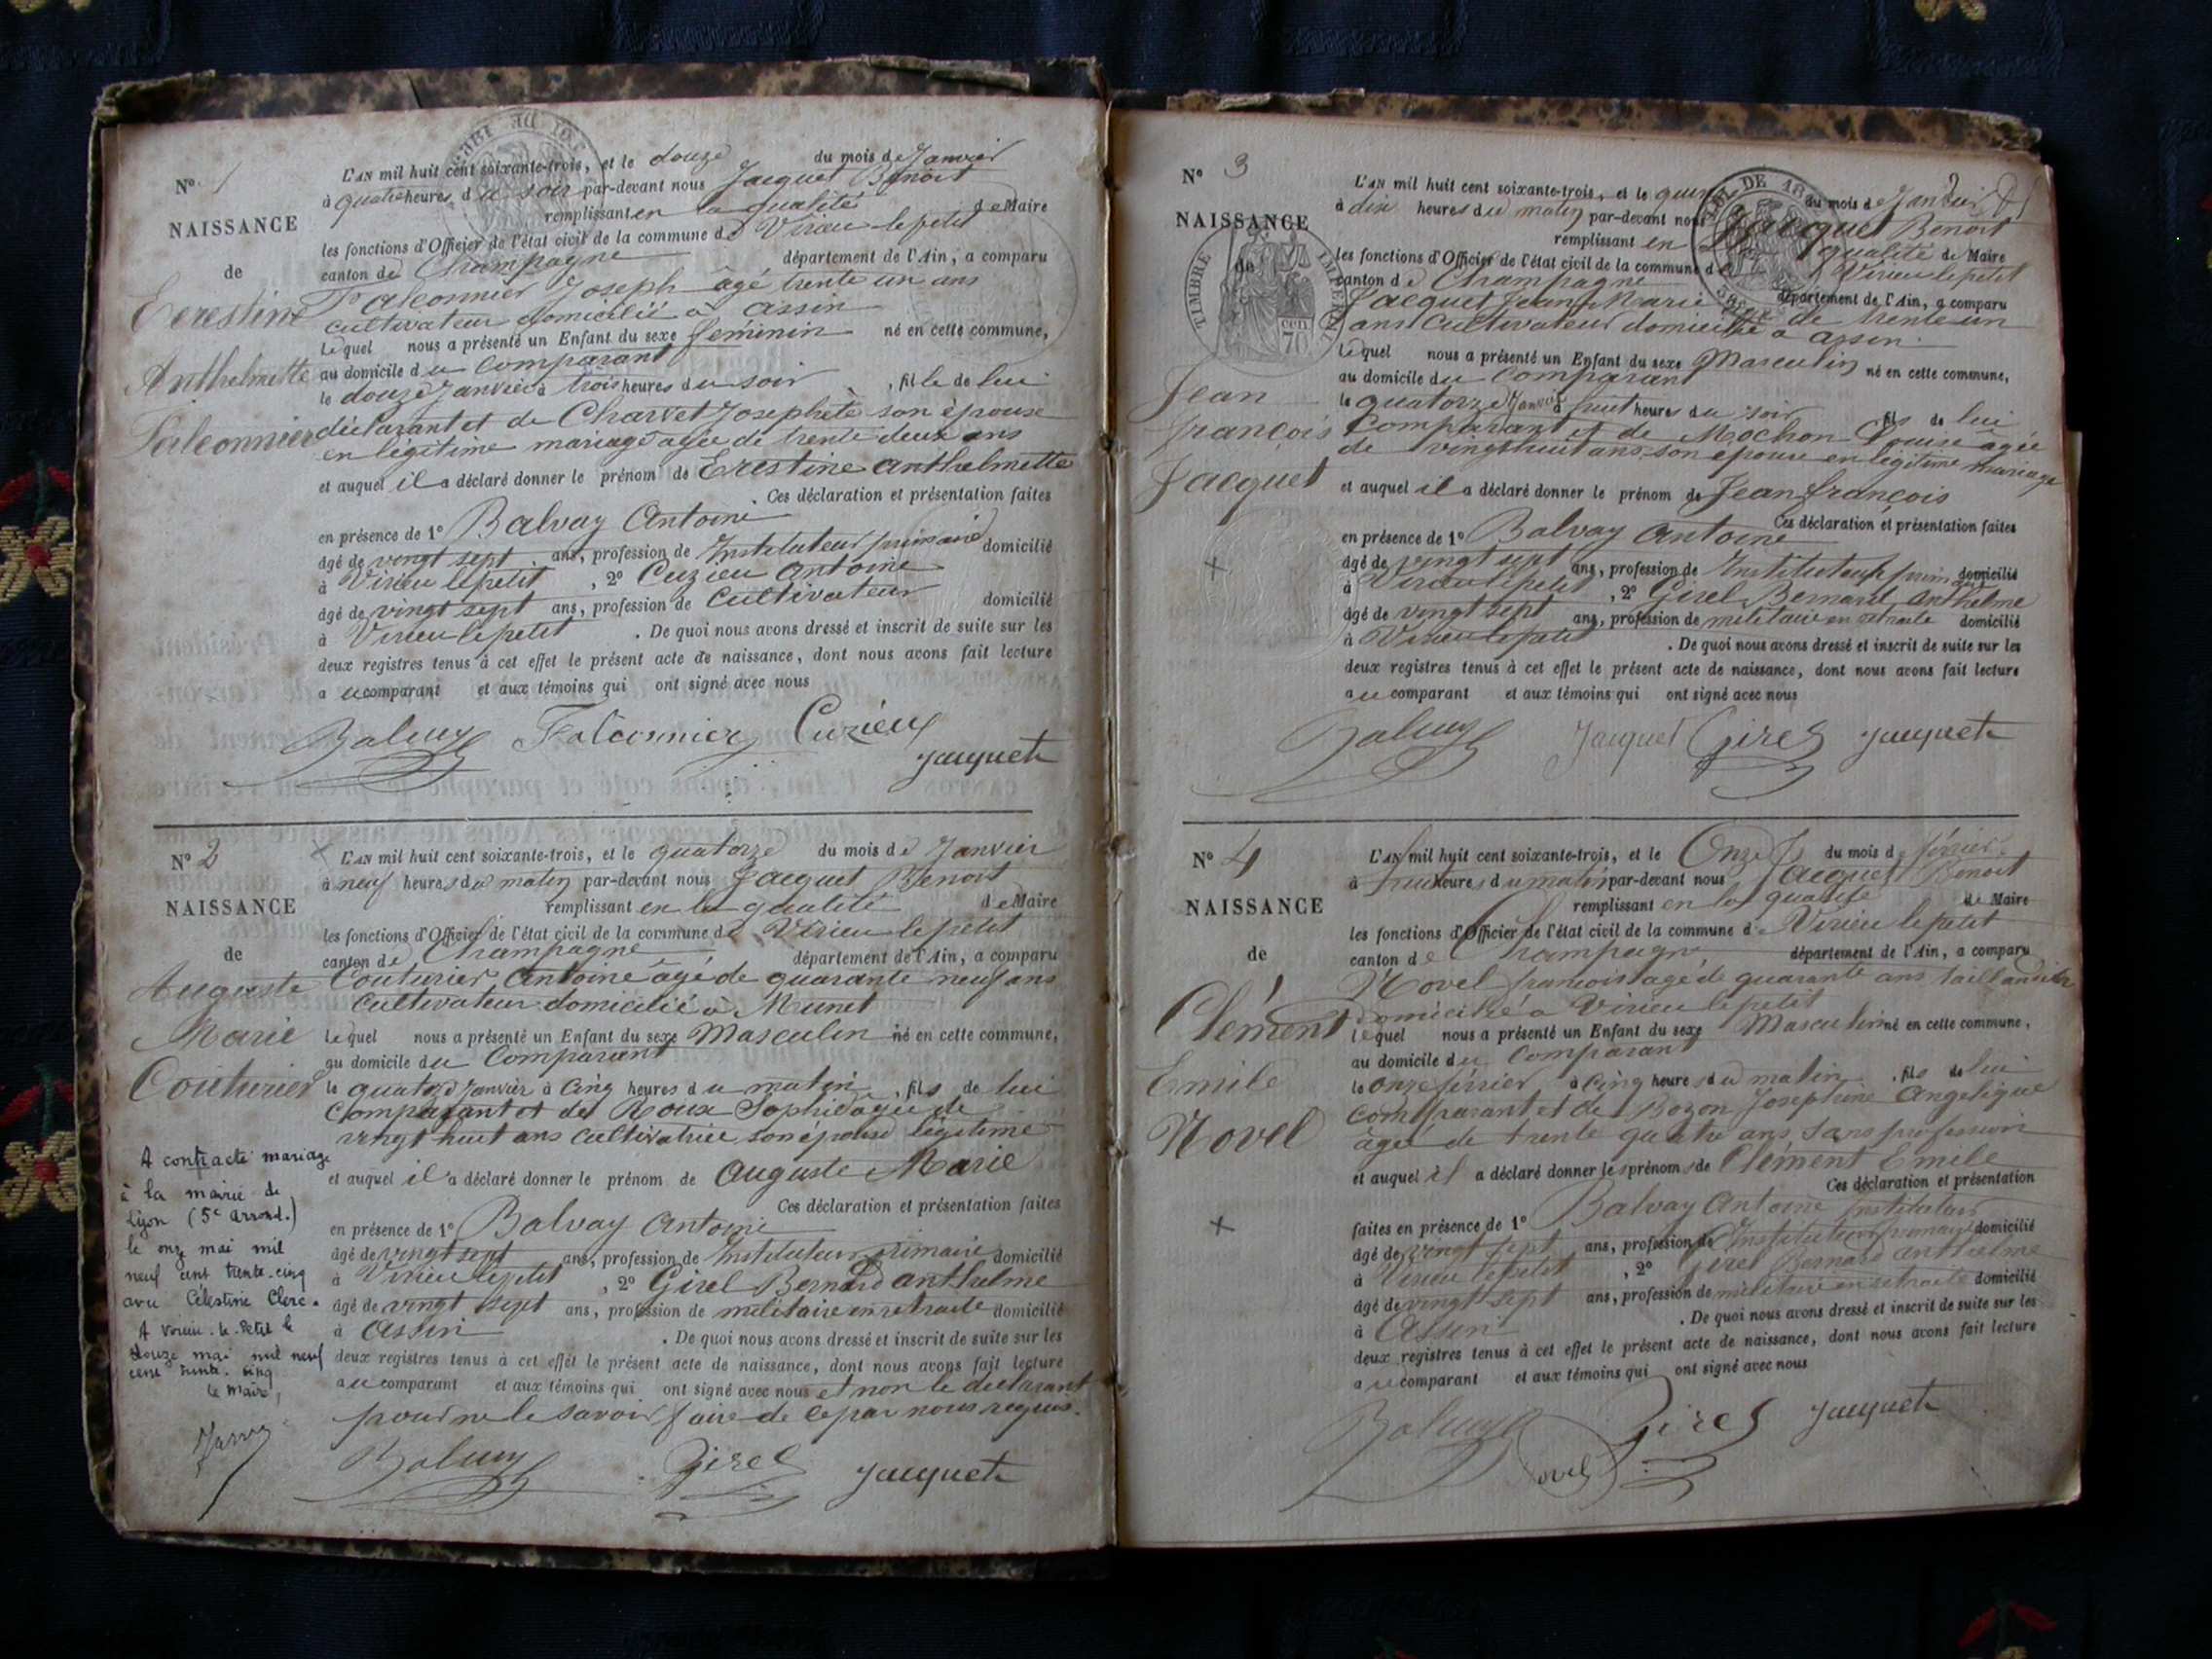 N° 1
NAISSANCE
de
Erestine
Anthelmette
Falconnier
L'AN mil huit cent soixante-trois, et le douze du mois de Janvier
à quatre heures du soir par-devant nous Jacquet Benoit
remplissant en la qualité de Maire
les fonctions d'Officier de l'état civil de la commune de Virieu le petit
canton de Champagne département de l'Ain, a comparu
Falconnier Joseph âgé trente un ans
cultivateur domicilié à assin
lequel nous a présenté un Enfant du sexe féminin né en cette commune,
au domicile du comparant
le douze Janvier à trois heures du soir, fille de lui
déclarant et de Charvet Josephete son épouse
en légitime mariage agée de trente deux ans
et auquel il a déclaré donner le prénom de Erestine anthelmette
. Ces déclaration et présentation faites
en présence de 1° Balvay Antoine
âgé de vingt sept ans, profession de Instituteur primaire domicilié
à Virieu le petit, 2° Cuzieu antoine
âgé de vingt sept ans, profession de cultivateur domicilié
à Virieu le petit. De quoi nous avons dressé et inscrit de suite sur les
deux registres tenus à cet effet le présent acte de naissance, dont nous avons fait lecture
au comparant et aux témoins qui ont signé avec nous
Balvay Falconnier Cuzieu
Jacquet
N° 2
NAISSANCE
de
Auguste
Marie
Couturier
L'AN mil huit cent soixante-trois, et le quatorze du mois de Janvier
à neuf heures du matin par-devant nous Jacquet Benoit
remplissant en la qualité de Maire
les fonctions d'Officier de l'état civil de la commune de Virieu le petit
canton de Champagne département de l'Ain, a comparu
Couturier Antoine agé de quarante neuf ans
cultivateur domicilié à Munet
lequel nous a présenté un Enfant du sexe Masculin né en cette commune,
au domicile du Comparant
le quatorze Janvier à cinq heures du matin, fils de lui
comparant et de Roux Sophie agée de
vingt huit ans cultivatrice son épouse légitime
et auquel il a déclaré donner le prénom de auguste Marie
Ces déclaration et présentation faites
en présence de 1° Balvay Antoine
âgé de vingt sept ans, profession de Instituteur primaire domicilié
à Virieu le petit, 2° Girel Bernard anthelme
âgé de vingt sept ans, profession de militaire en retraite domicilié
à Assin. De quoi nous avons dressé et inscrit de suite sur les
deux registres tenus à cet effet le présent acte de naissance, dont nous avons fait lecture
au comparant et aux témoins qui ont signé avec nous et non le declarant
pour ne le savoir faire de ce par nous requis.
Balvay Girel Jacquet
A contracté mariage
à la mairie de
Lyon (5e arrond.)
le onze mai mil
neuf cent trente-cinq
avec Célestine Clerc.
A Virieu-le-Petit le
douze mai mil neuf
cent trente-cinq
Le Maire,
N° 3
NAISSANCE
de
TIMBRE IMPERIAL
70 cen
Jean
françois
Jacquet
L'AN mil huit cent soixante-trois, et le du mois de Janvier
à dix heures du matin par-devant nous Jacquet Benoit
remplissant en qualité de Maire
les fonctions d'Officier de l'état civil de la commune de Virieu le petit
canton de Champagne département de l'Ain, a comparu
Jacquet Jean Marie de trente un
ans cultivateur domicilié a assin
lequel nous a présenté un Enfant du sexe Masculin né en cette commune,
au domicile du Comparant
le quatorze Janvier à huit heures du soir fils de lui
comparant et de Mochon Louise agée
de vingt huit ans son épouse en légitime mariage
et auquel il a déclaré donner le prénom de Jean françois
Ces déclaration et présentation faites
en présence de 1° Balvay Antoine
âgé de vingt sept ans, profession de Instituteur primaire domicilié
à Virieu le petit, 2° Girel Bernard anthelme
âgé de vingt sept ans, profession de militaire en retraite domicilié
à Virieu le petit. De quoi nous avons dressé et inscrit de suite sur les
deux registres tenus à cet effet le présent acte de naissance, dont nous avons fait lecture
au comparant et aux témoins qui ont signé avec nous
Balvay Jacquet Girel Jacquet
N° 4
NAISSANCE
de
Clément
Emile
Novel
L'AN mil huit cent soixante-trois, et le Onze du mois de février
à huit heures du matin par-devant nous Jacquet Benoit
remplissant en la qualité de Maire
les fonctions d'Officier de l'état civil de la commune d Virieu le petit
canton de Champagne département de l'Ain, a comparu
Novel françois agé de quarante ans taillandier
domicilié a Virieu le petit
lequel nous a présenté un Enfant du sexe Masculin né en cette commune,
au domicile du Comparant
le onze février à cinq heures du matin, fils de lui
comparant et de Bozon Josephine Angelique
agée de trente quatre ans, sans profession
et auquel il a déclaré donner les prénoms de Clément Emile
Ces déclaration et présentation
faites en présence de 1° Balvay Antoine Instituteur
âgé de vingt sept ans, profession de Instituteur primaire domicilié
à Virieu le petit, 2° Girel Bernard anthelme
âgé de vingt sept ans, profession de militaire en retraite domicilié
à Assin. De quoi nous avons dressé et inscrit de suite sur les
deux registres tenus à cet effet le présent acte de naissance, dont nous avons fait lecture
au comparant et aux témoins qui ont signé avec nous
Balvay Girel Jacquet
Novel